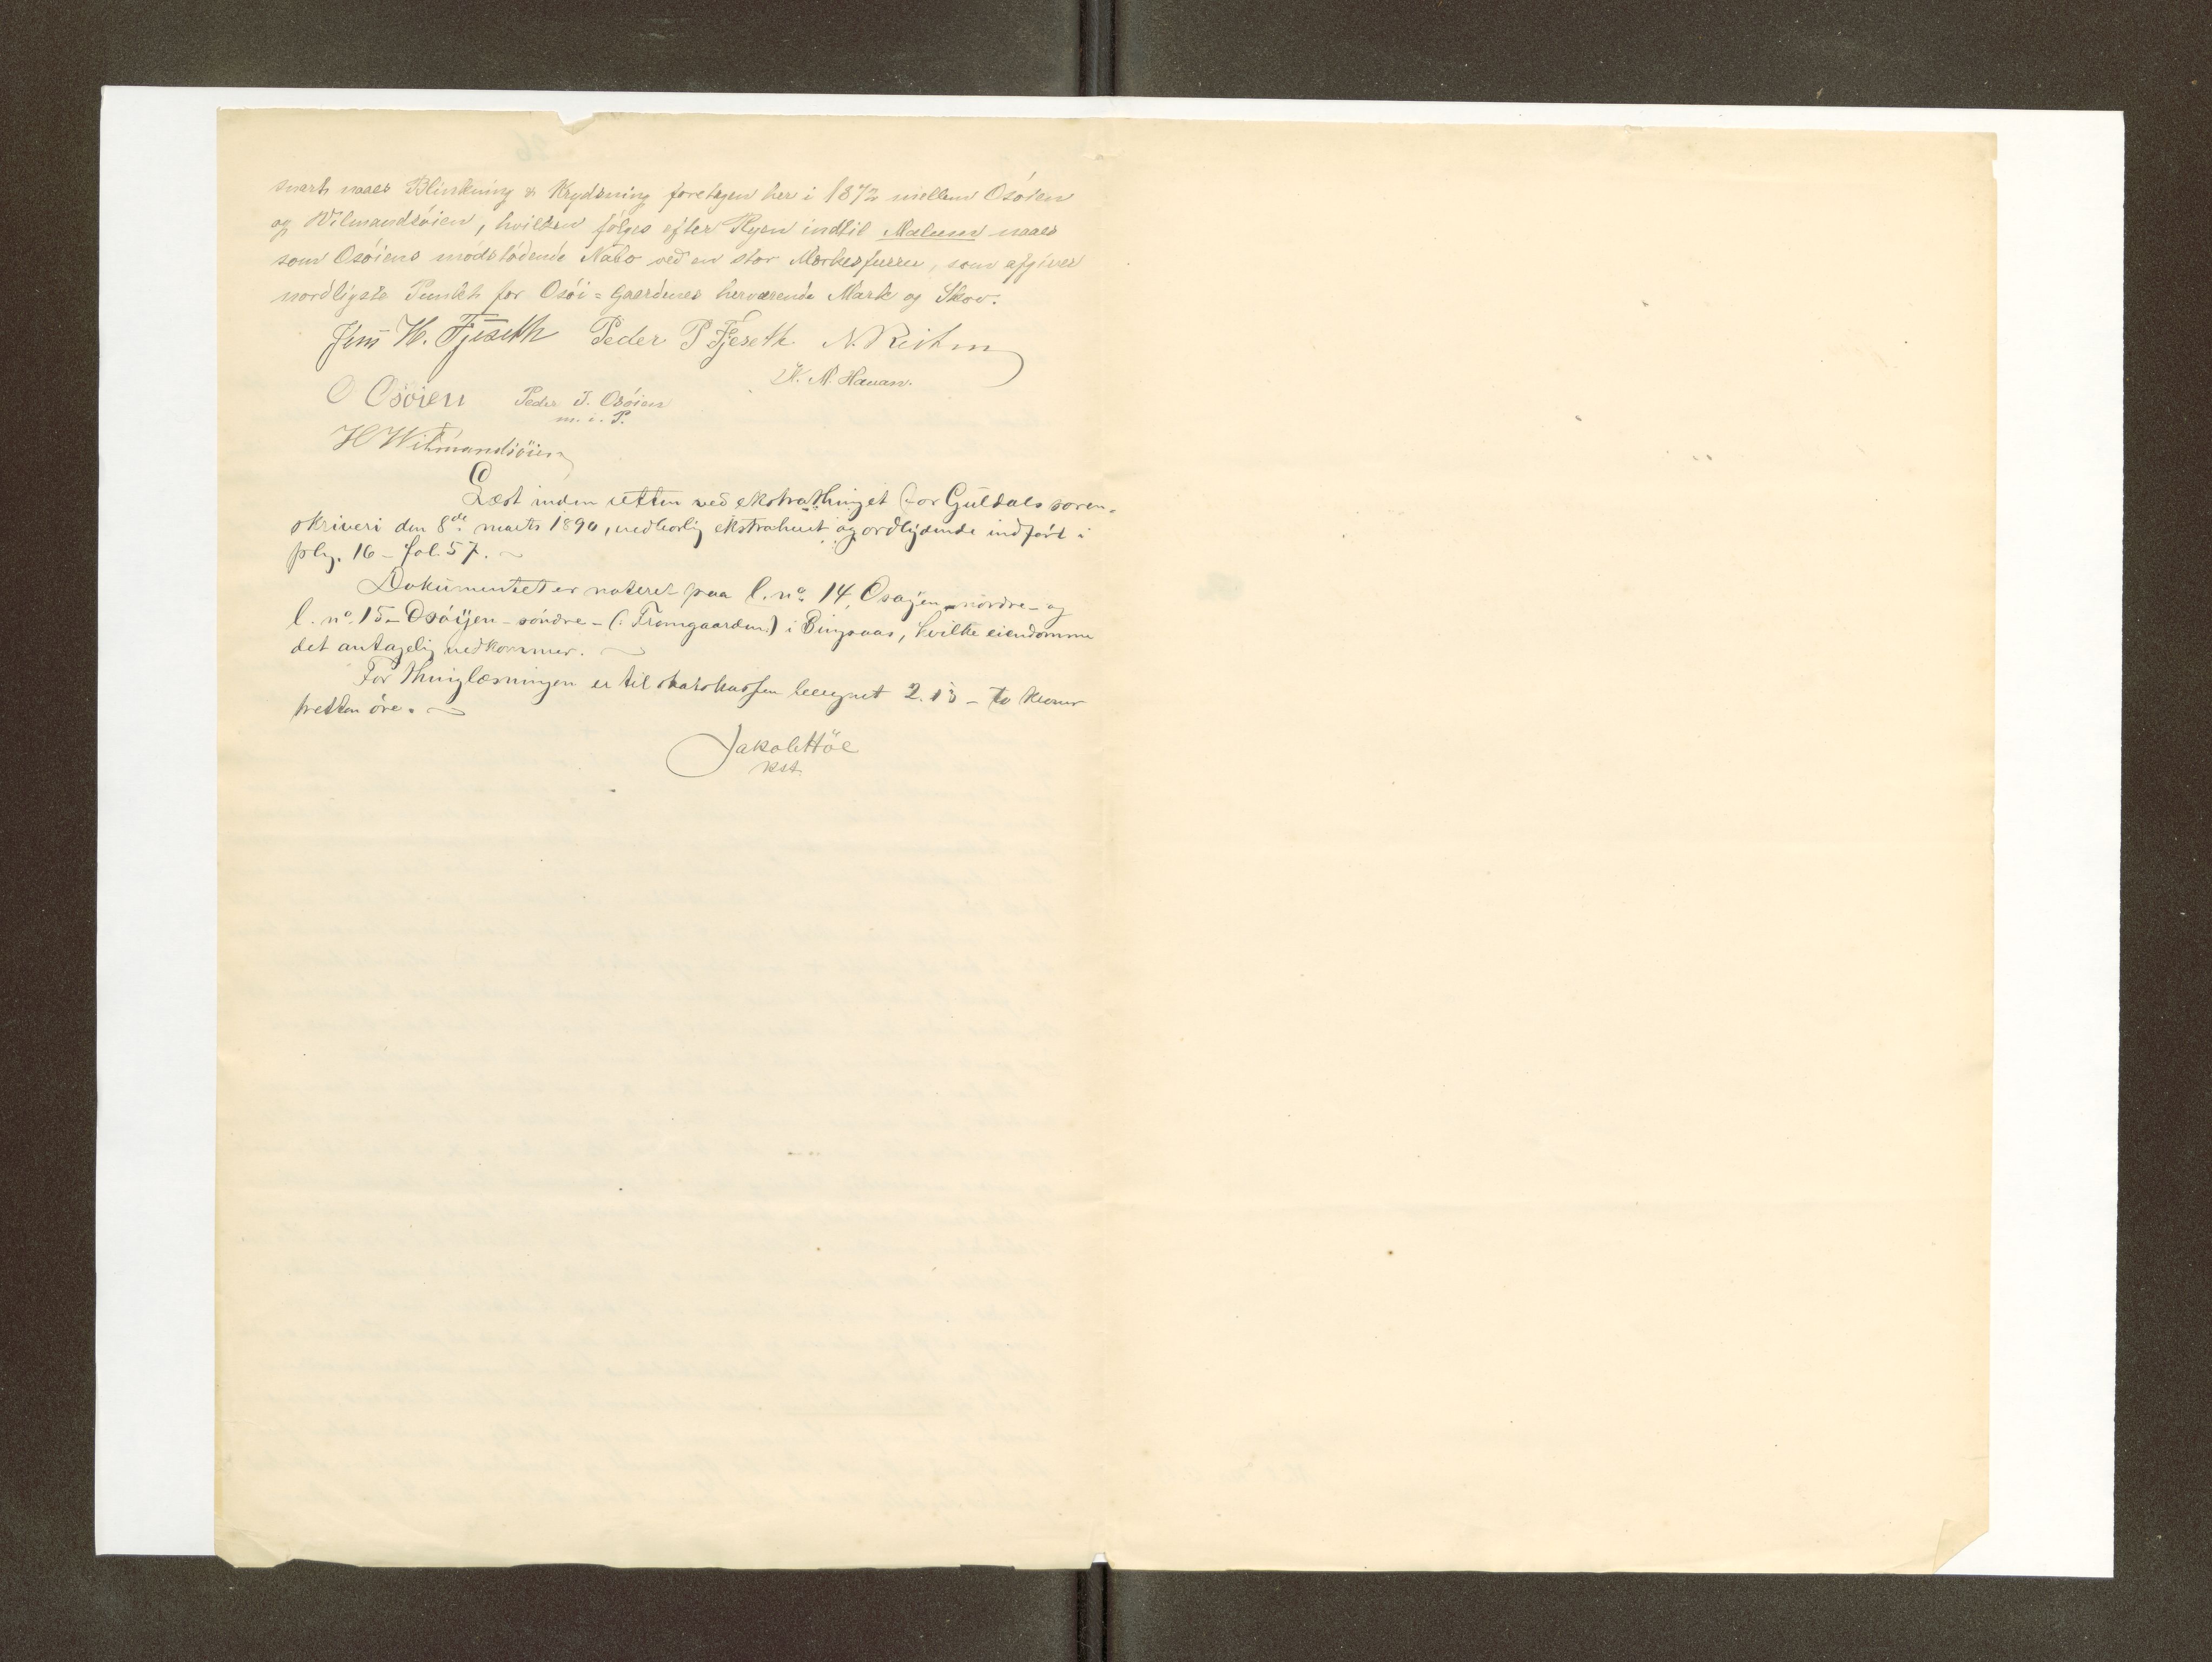 snart naaes Blinkning & Krydsning foretagen her i 1872 mellem Osöien
og Wilmandsöien, hvilken følges efter Ryen indtil Mælum naaes
som Osöiens modstödende Nabo ved en stor Mærkesfurru, som afgiver
nordligste Punkt for Osöi=Gaardenes herværende Mark og Skov.
H. Fjeseth Peder P Fjeseth N. Reitan
M. Hauan.
O Osöien Peder J. Osöien
m. i. P.
H Wilmandsöien
Læst inden retten ved ekstrathinget for Guldals soren-
skriveri den 8de marts 1890, vedborlig ekstraheret og ordlydende indført i
ptbg. 16 - fol. 57.
Dokumentet er noteret paa l. no 14, Osøjen nordre - og
l. no. 15 - Osöijen - söndre - (: Framgaarden:) i Singsaas, hvilke eiendomme
det antagelig vedkommer.
For thinglæsningen er til statskassen beregnet 2.13 - to kroner
tretten öre.
Jakob Höe
kst.